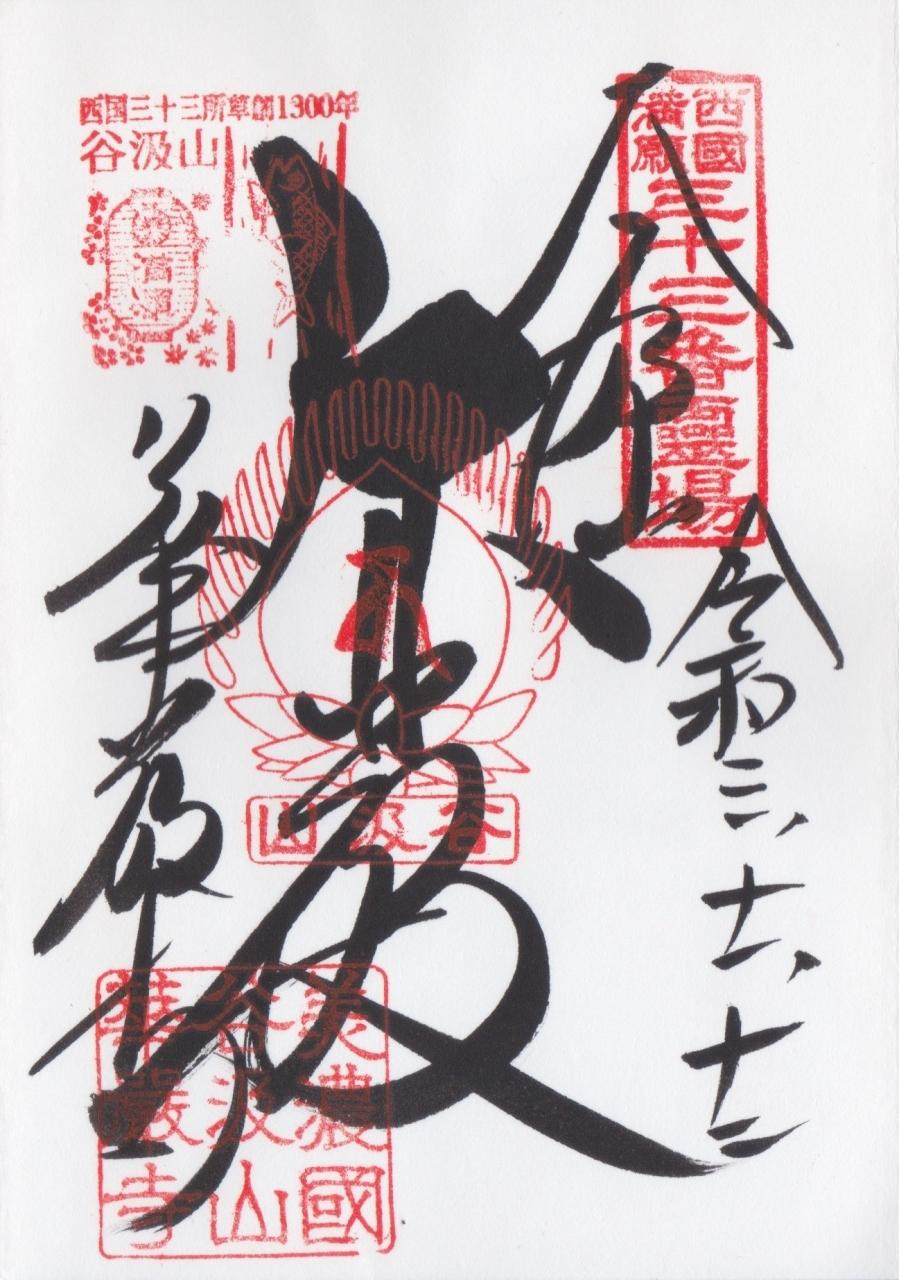 西国三十三所草創1300年
谷汲山
西國
満願
三十三番霊場
令和三、十一、十二
大悲殿
谷汲山
華厳寺
美濃國
谷汲山
華嚴寺